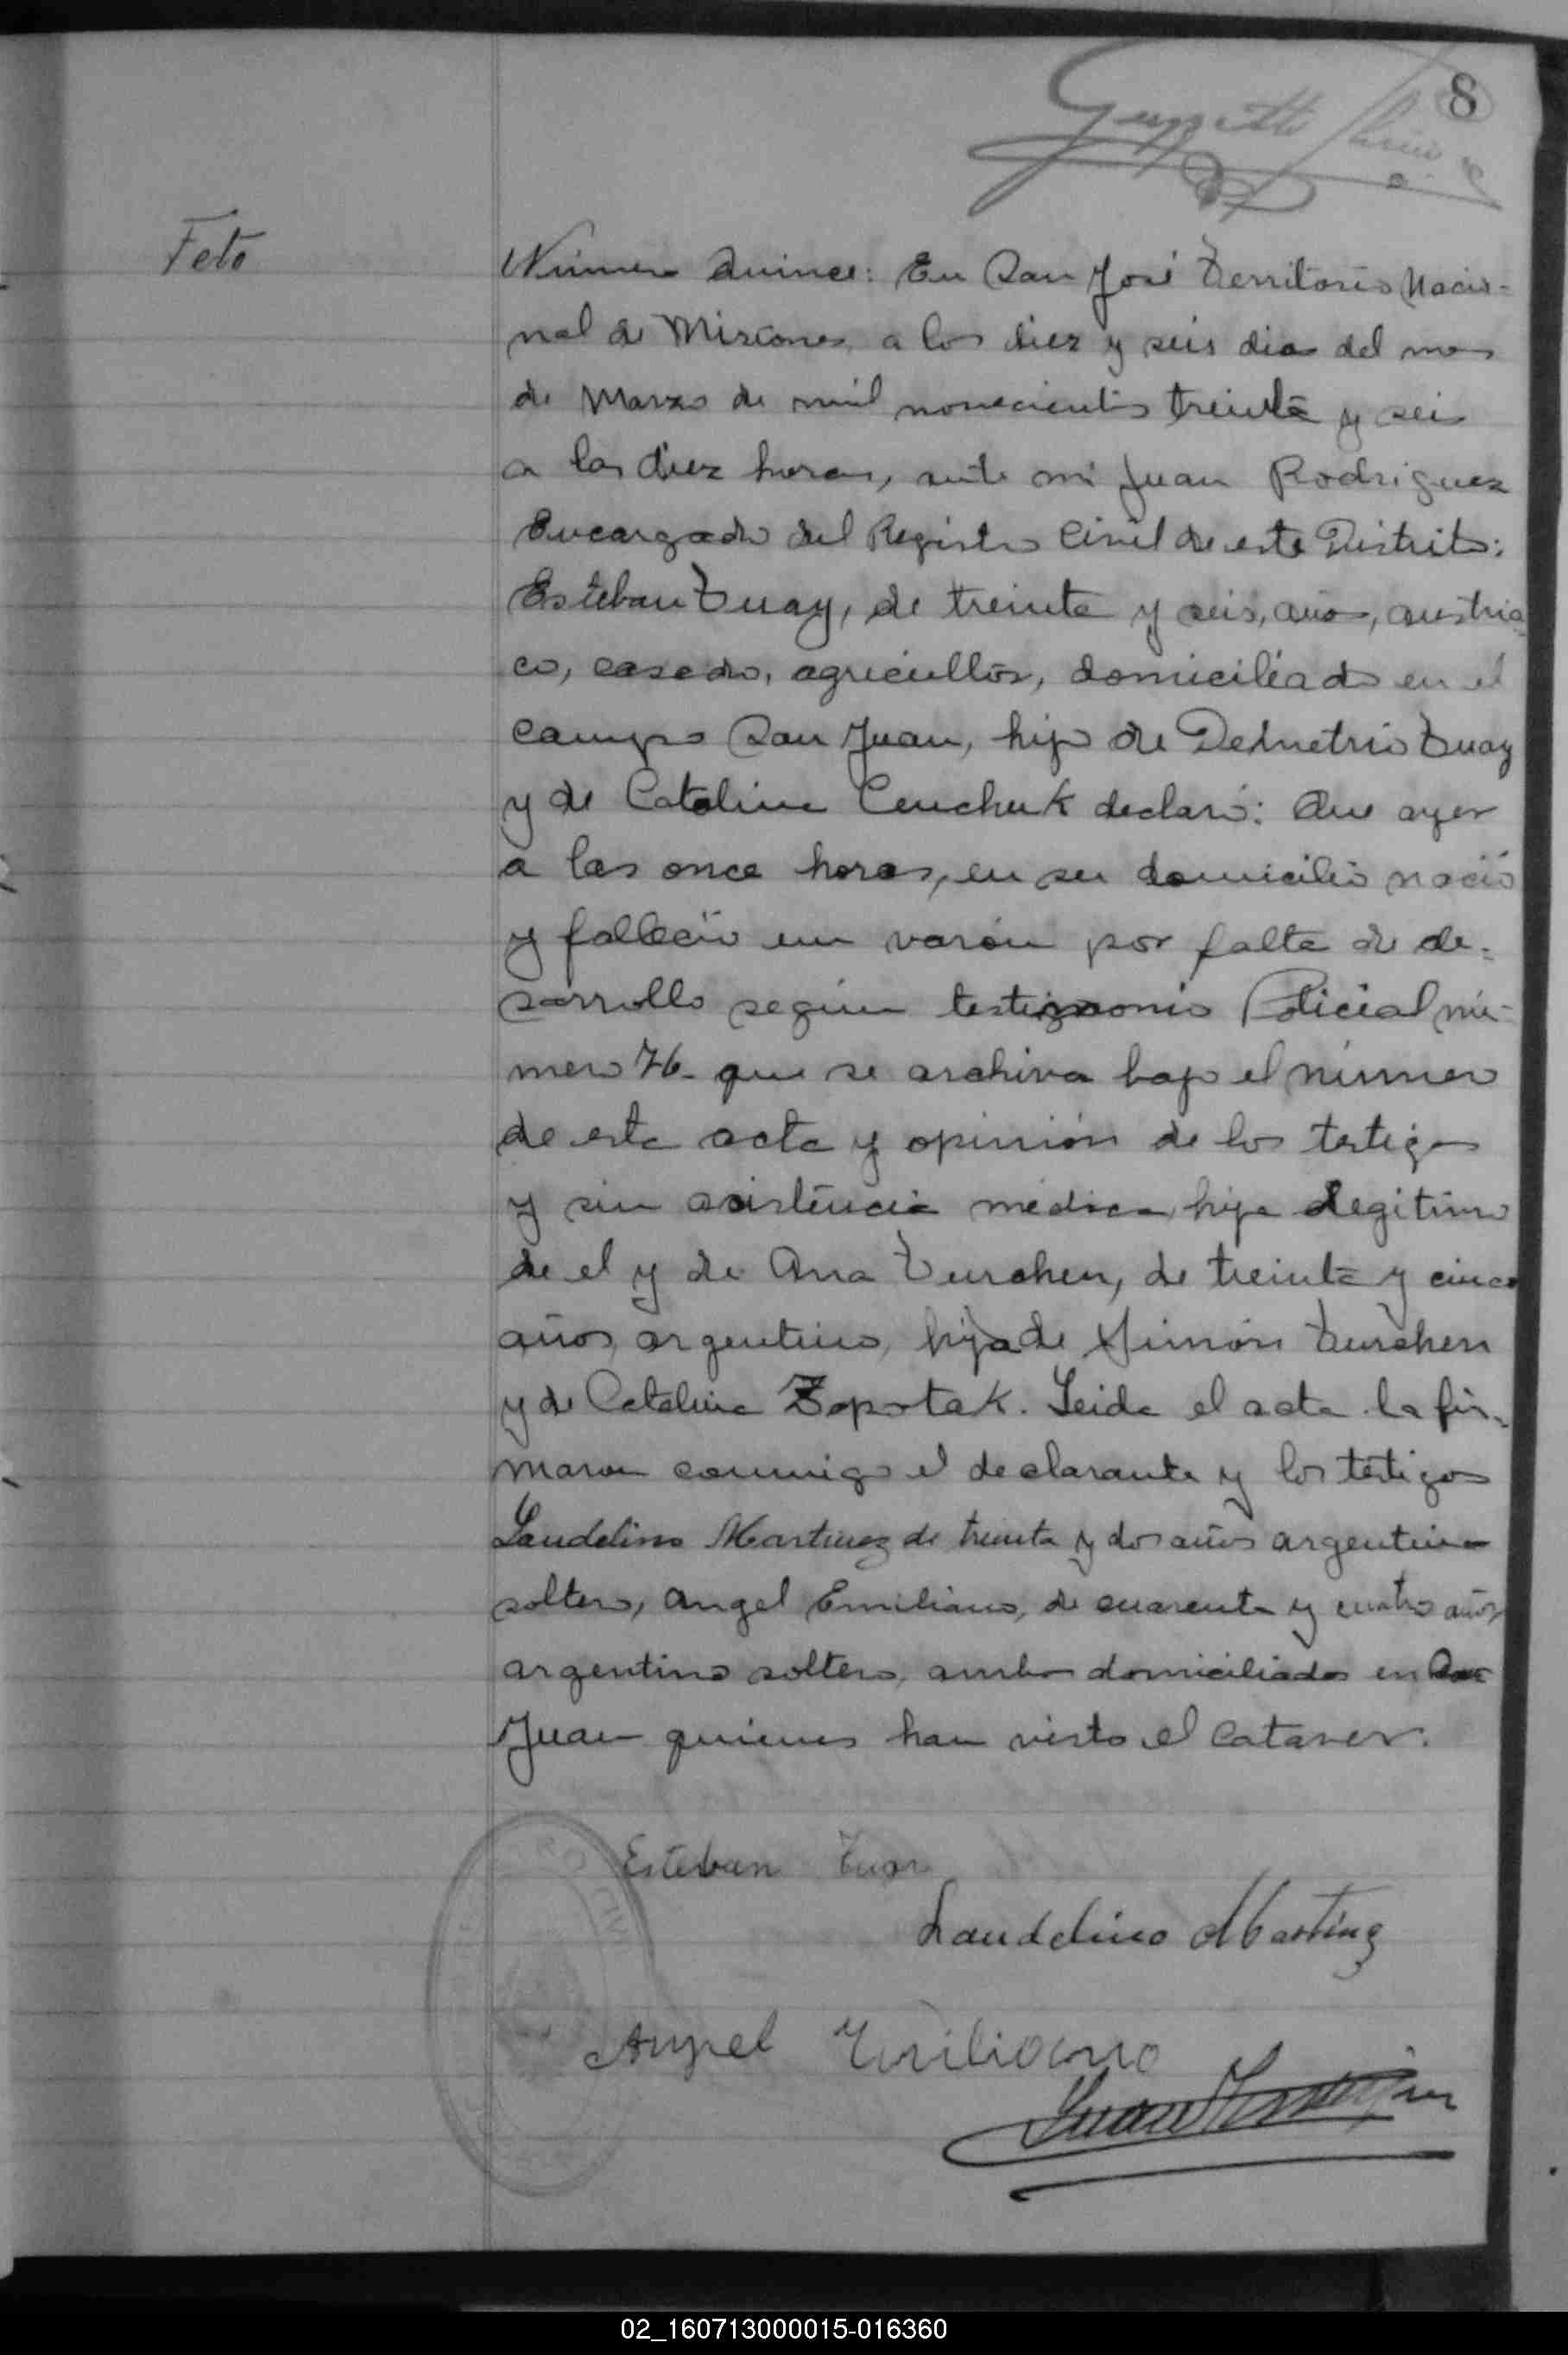 8
Feto
Número Quince: En San José Territorio Nacio-
nal de Misiones, a los diez y seis dias del mes
de Marzo de mil novecientos treinta y seis
a las diez horas, ante mi Juan Rodriguez
Encargado del Registro Civil de este Distrito:
Esteban Tuay, de treinta y seis, años, austria
co, casado, agricultor, domiciliado en el
campo San Juan, hijo de Demetrio Tuay
y de Catalina Cenchuk declaró: Que ayer
a las once horas, en su domicilio nació
y falleció un varón por falta de de-
sarrollo según testimonio Policial nú-
mero 76- que se archiva bajo el número
de esta acta y opinión de los testigos
y sin asistencia médica, hijo legitimo
de el y de Ana Turchen, de treinta y cinco
años, argentina, hija de Simón Turchen
y de Catalina Zapotak. Leida el acta la fir-
maron conmigo el declarante y los testigos
Laudelino Martinez de treinta y dos años argentino
soltero, Angel Emiliano, de cuarenta y cuatro años
argentino soltero, ambos domiciliados en San
Juan quienes han visto el cataver.
Esteban Tuay
Laudelino Martinez
Angel Emiliano
Juan Rodriguez
02_160713000015-016360